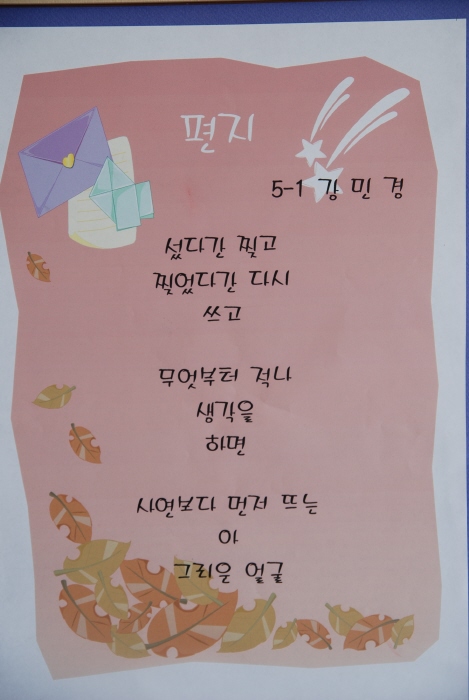 편지
5-1 강민경
섰다간 찢고
찢었다간 다시
쓰고
무엇부터 적나
생각을
하면
사연보다 먼저 뜨는
아
그리운 얼굴